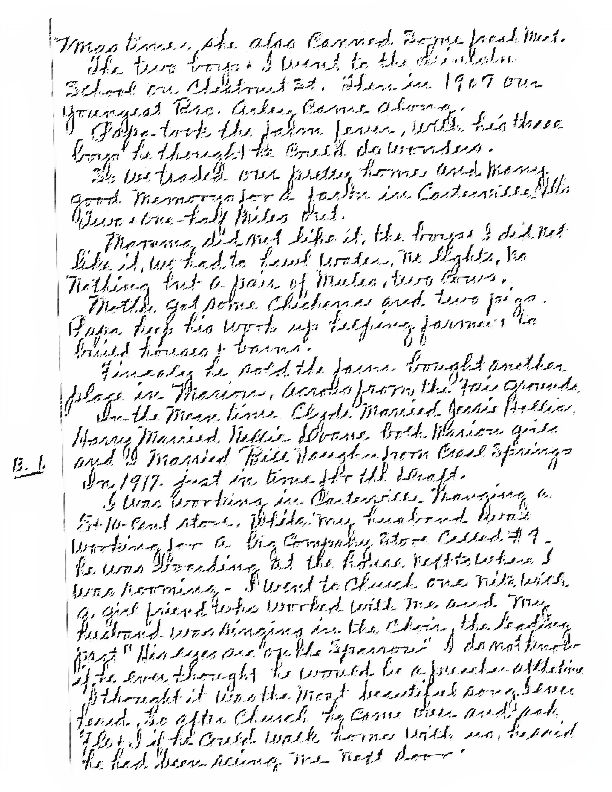 Xmas time. she also Canned Some fresh Meat.
The two boys & I went to the Lincoln
School on Chestnut St. Then in 1907 our
youngest Bro. Came along.
Papa took the farm fever, with his three
boys he thought he Could do wonders.
So we traded our pretty homes and Many
good Memorys for a farm in Carterville, Ills
Two & One-half Miles Out.
Mamma did not like it, the boys & I did not
like it, we had to hawl Water, No lights, No
Nothing but a pair of Mules, two Cows.
Mother got some Chickens and two pigs.
Papa keep his work up helping farmers to
build houses & barns.
Finealy he sold the farm bought another
place in Marion, across from the fair grounds
In the Mean time Clyde Married Jessie
Harry Married Nellie both Marion girls
and I Married Bill from Creal Springs
In 1917. just in time for the draft.
B. 1.
I was working in Carterville Manging a
5 & 10-Cent store. While My husband was
working for a big Company Store Called # 9.
he was Boarding at the house Next to where I
was rooming - I went to Church one Nite with
a girl friend who worked with Me and My
husband was singing in the Choir, the leading
part "His eyes are on the Sparrow" I do not know
if he ever thought he would be a preacher at the time
I thought it was the Most beautiful song I ever
heard, So after Church he Came over and ask
Flo & I if he Could walk home with us, he said
he had been seeing Me Next door.